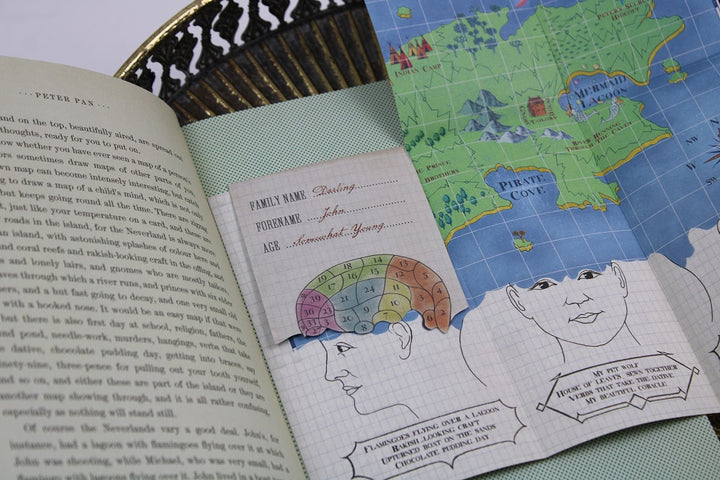 ···PETER PAN···
and on the top, beautifully aired, are spread out
thoughts, ready for you to put on.
ow whether you have ever seen a map of a person's
ors sometimes draw maps of other parts of you,
wn map can become intensely interesting, but catch
g to draw a map of a child's mind, which is not only
but keeps going round all the time. There are zigzag
just like your temperature on a card, and these are
roads in the island, for the Neverland is always more
an island, with astonishing splashes of colour here and
and coral reefs and rakish-looking craft in the offing, and
and lonely lairs, and gnomes who are mostly tailors,
ves through which a river runs, and princes with six elder
ers, and a hut fast going to decay, and one very small old
with a hooked nose. It would be an easy map if that were
but there is also first day at school, religion, fathers, the
nd pond, needle-work, murders, hangings, verbs that take
dative, chocolate pudding day, getting into braces, say
nety-nine, three-pence for pulling out your tooth yourself,
nd so on, and either these are part of the island or they are
another map showing through, and it is all rather confusing,
especially as nothing will stand still.
Of course the Neverlands vary a good deal. John's, for
instance, had a lagoon with flamingoes flying over it at which
John was shooting, while Michael, who was very small, had
a flamingo with lagoons flying over it. John lived in a boat
FAMILY NAME Darling
FORENAME John
AGE Somewhat Young
19 18 14 13
17 16 15 12 5
30 25 24 11 3 4
39 21 10
38 23 20 9 7 6 2
8
INDIAN CAMP
MERMAID
LAGOON
PIRATE
COVE
FLAMINGOES FLYING OVER A LAGOON
RAKISH-LOOKING CRAFT
UPTURNED BOAT ON THE SANDS
CHOCOLATE PUDDING DAY
MY PET WOLF
HOUSE OF LEAVES SEWN TOGETHER
VERBS THAT TAKE THE DATIVE
MY BEAUTIFUL CORACLE